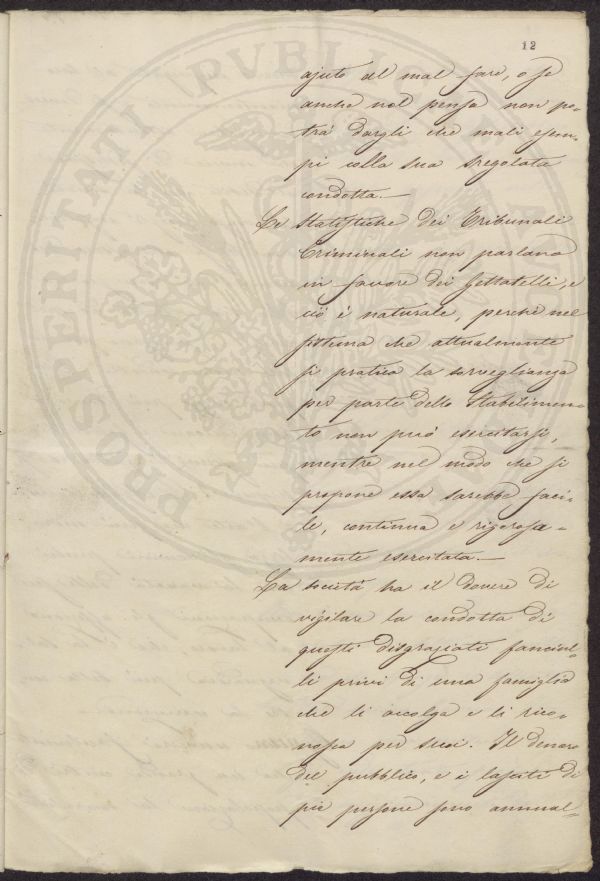 12
ajuto al mal fare, o se
anche nol pensa non po-
trà dargli che mali esem-
pi colla sua sregolata
condotta.—
Le Statistiche dei Tribunali
Criminali non parlano
in favore dei Gettatelli, e
ciò è naturale, perchè nel
sistema che attualmente
si pratica la sorveglianza
per parte dello Stabilimen-
to non può esercitarsi,
mentre nel modo che si
propone essa sarebbe faci-
le, continua e rigorosa-
mente esercitata.—
La società ha il dovere di
vigilare la condotta di
questi disgraziati fanciul-
li privi di una famiglia
che li accolga e li rico-
nosca per suoi. Il denaro
del pubblico, e i lasciti di
pie persone sono annual-
PROSPERITATI PVBLICAE